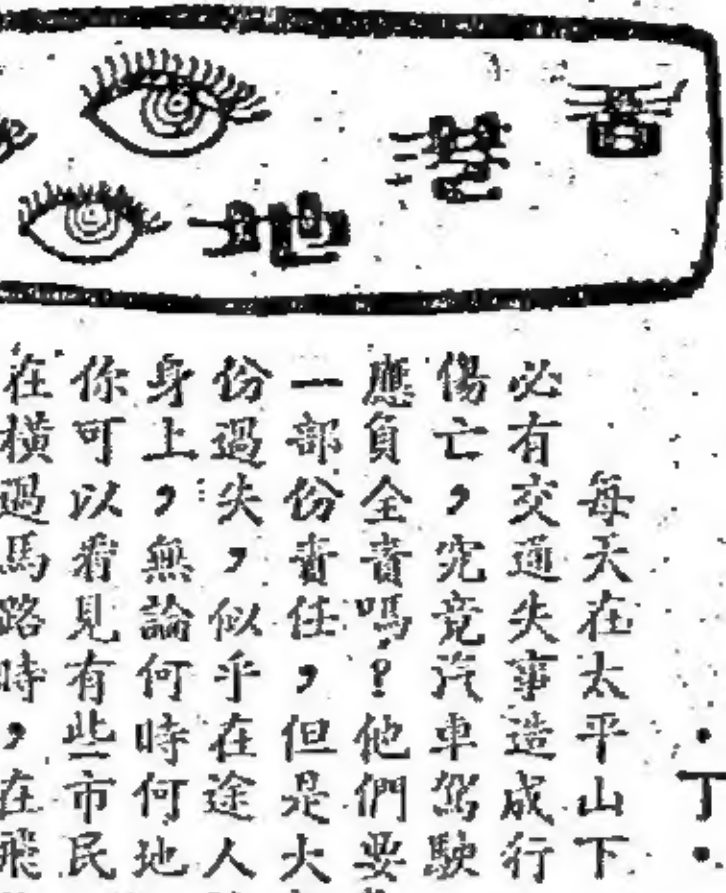 香港地
・丁・
每天在太平山下
必有交通失事造成行
傷亡，究竟汽車駕駛
應負全責嗎？他們要
一部份責任，但是大
份過失，似乎在途人
身上，無論何時何地
你可以看見有些市民
在橫過馬路時，在飛